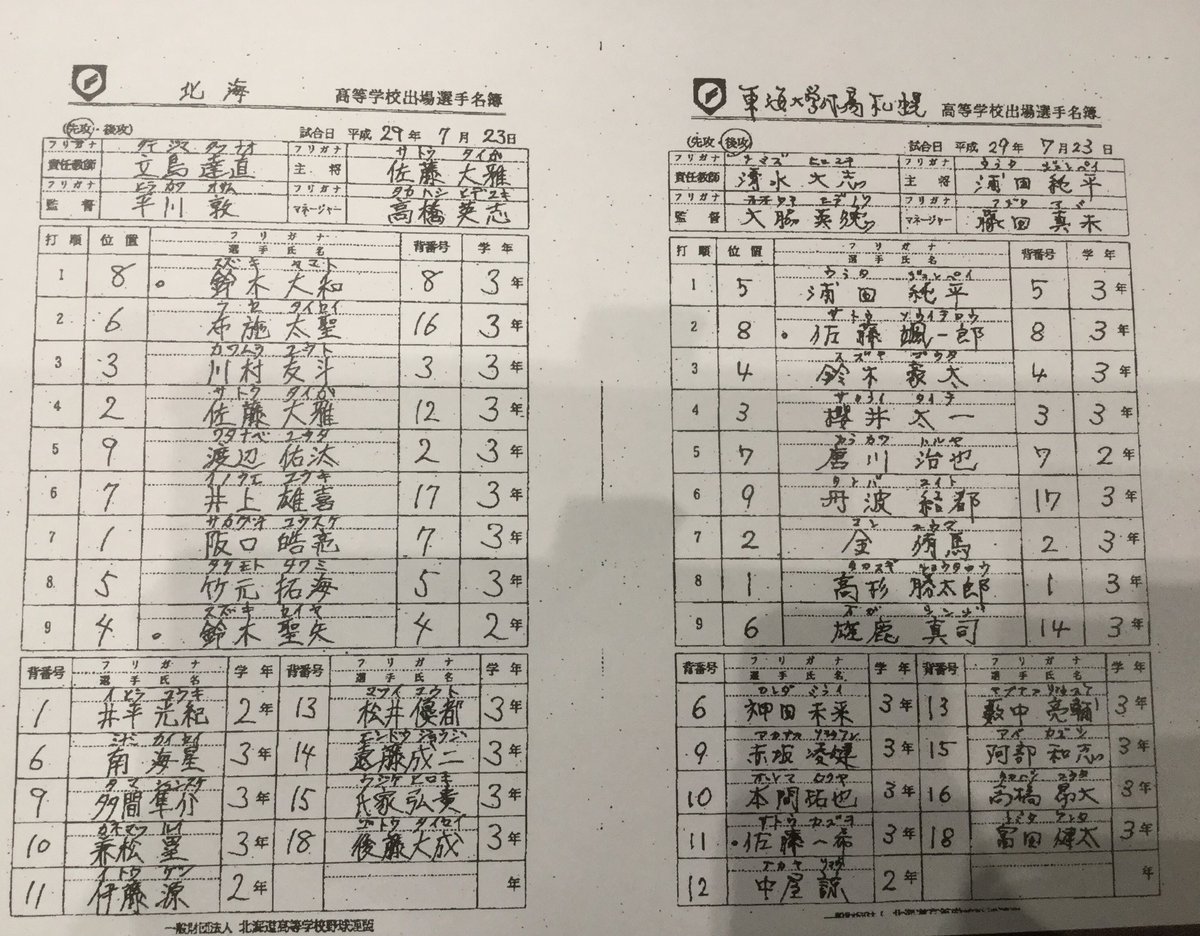 北海 高等学校出場選手名簿
(先攻・後攻) 試合日 平成 29年 7月 23日
フリガナ タテ シマ タツ ナオ フリガナ サトウ タイガ
責任教師 立島 達直 主将 佐藤 大雅
フリガナ ヒラ カワ オサム フリガナ タカハシ ヒデユキ
監督 平川 敦 マネージャー 高橋 英志
打順 位置 フリガナ 選手氏名 背番号 学年
スズキ ヤマト
1 8 鈴木 大和 8 3年
フセ タイセイ
2 6 布施 太聖 16 3年
カワムラ ユウト
3 3 川村 友斗 3 3年
サトウ タイガ
4 2 佐藤 大雅 12 3年
ワタナベ ユウタ
5 9 渡辺 佑汰 2 3年
イノウエ ユウキ
6 7 井上 雄喜 17 3年
サカグチ コウスケ
7 1 阪口 皓亮 7 3年
タケモト タクミ
8 5 竹元 拓海 5 3年
スズキ セイヤ
9 4 鈴木 聖矢 4 2年
背番号 フリガナ 選手氏名 学年 背番号 フリガナ 選手氏名 学年
イヒラ コウキ マツイ ユウト
1 井平 光紀 2年 13 松井 優都 3年
ミナミ カイセイ エンドウ ジョウジ
6 南 海星 3年 14 遠藤 成二 3年
タマ シュンスケ ウジケ ヒロキ
9 多間 隼介 3年 15 氏家 弘貴 3年
カネマツ ルイ ゴトウ タイセイ
10 兼松 塁 3年 18 後藤 大成 3年
イトウ ゲン
11 伊藤 源 2年 年
一般財団法人 北海道高等学校野球連盟
東海大学付属札幌 高等学校出場選手名簿
(先攻・後攻) 試合日 平成 29年 7月 23日
フリガナ フリガナ ウラタ ジュンペイ
責任教師 清水 大志 主将 浦田 純平
フリガナ オオワキ ヒデノリ フリガナ フジタ マミ
監督 大脇 英徳 マネージャー 藤田 真未
打順 位置 フリガナ 選手氏名 背番号 学年
ウラタ ジュンペイ
1 5 浦田 純平 5 3年
サトウ ソウイチロウ
2 8 佐藤 颯一郎 8 3年
スズキ ゴウタ
3 4 鈴木 豪太 4 3年
サクライ タイチ
4 3 櫻井 太一 3 3年
カラカワ トルヤ
5 7 唐川 治也 7 2年
タンバ ユイト
6 9 丹波 結都 17 3年
コン ユウマ
7 2 金 侑馬 2 3年
タカスギ ショウタロウ
8 1 高杉 勝太郎 1 3年
オガ シンジ
9 6 雄鹿 真司 14 3年
背番号 フリガナ 選手氏名 学年 背番号 フリガナ 選手氏名 学年
カンダ ミライ ヤブナカ リョウスケ
6 神田 未来 3年 13 藪中 亮輔 3年
アカサカ アベ カズシ
9 赤坂 凌 3年 15 阿部 和志 3年
ホンマ タクヤ タカハシ コウタ
10 本間 拓也 3年 16 高橋 昂大 3年
サトウ カズキ トミタ ケンタ
11 佐藤 一希 3年 18 富田 健太 3年
ナカヤ リョウ
12 中屋 諒 2年 年